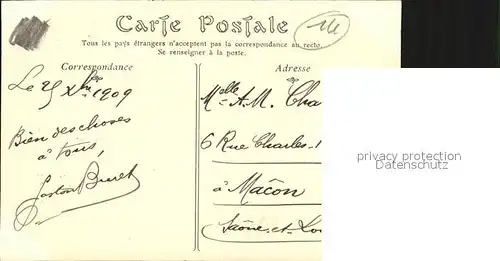 Carte Postale
14
Tous les pays étrangers n'acceptent pas la correspondance au recto.
Se renseigner à la poste.
Correspondance
Le 25 Xbre 1909
Bien des choses
à tous,
Gaston Buret
Adresse
Melle A.M. Cha
6 Rue Charles-
à Mâcon
Saône-et-Loi
privacy protection
Datenschutz